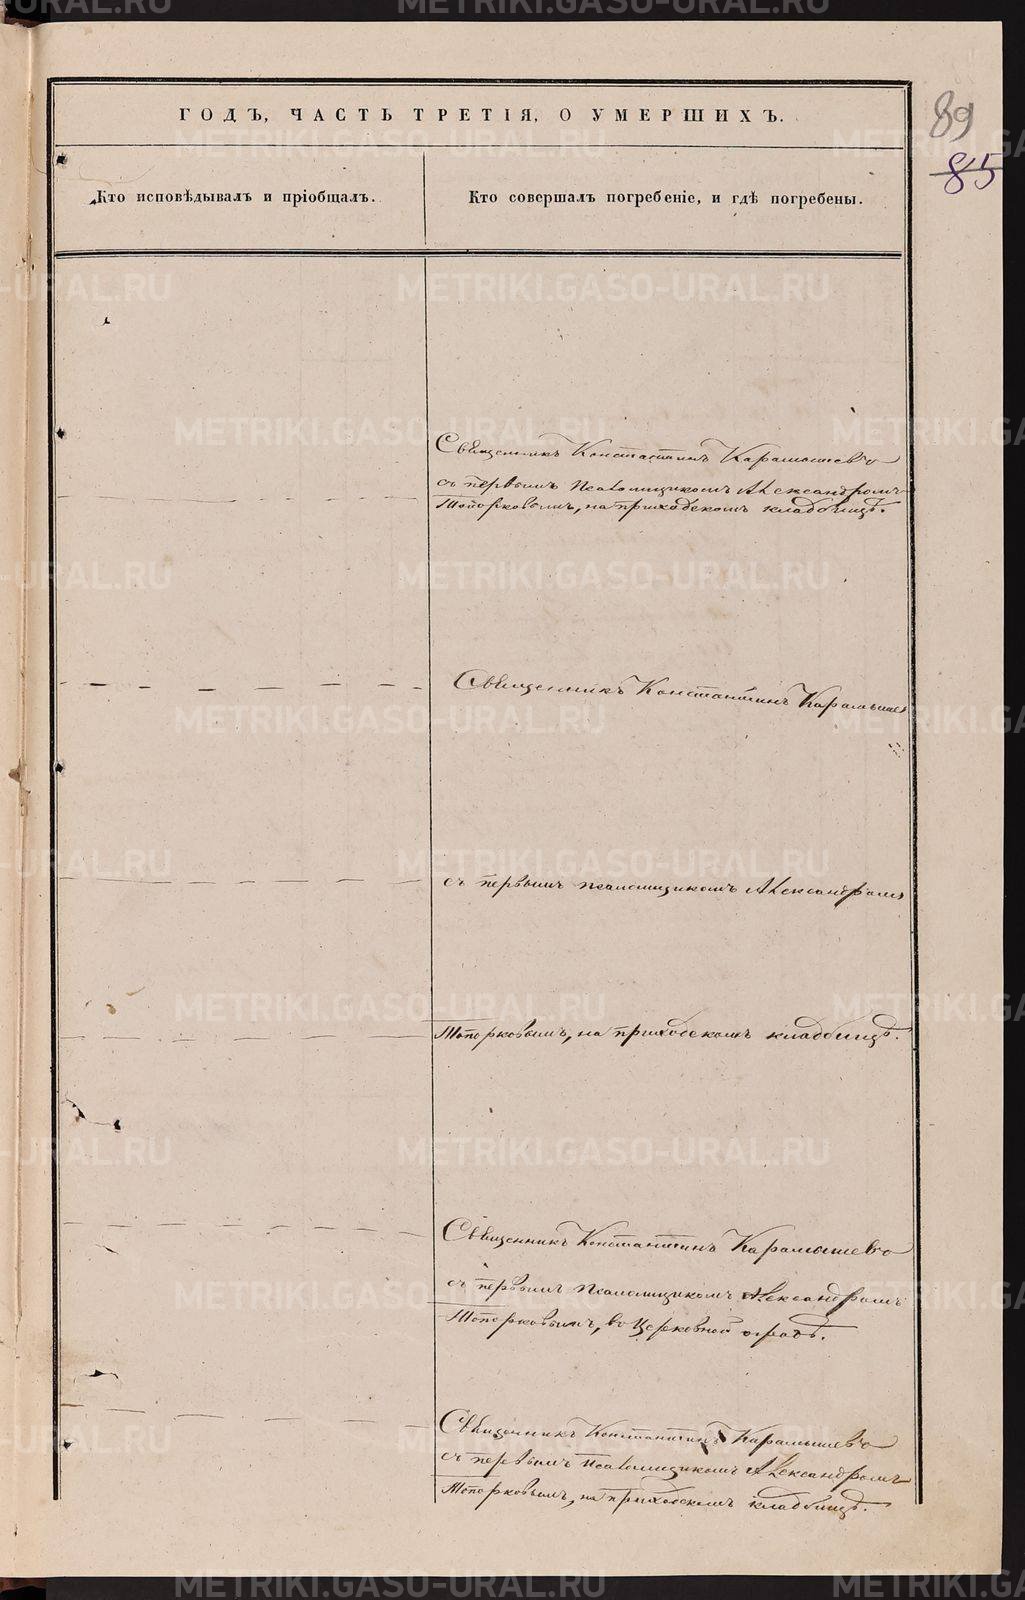 ГОДЪ, ЧАСТЬ ТРЕТІЯ, О УМЕРШИХЪ.
89
85
Кто исповѣдывалъ и пріобщалъ.
Кто совершалъ погребеніе, и гдѣ погребены.
Священникъ Константинъ Карамышевъ
съ первымъ псаломщикомъ Александромъ
Топорковымъ, на приходскомъ кладбищѣ.
Священникъ Константинъ Карамышев
съ первымъ псаломщикомъ Александромъ
Топорковымъ, на приходскомъ кладбищѣ.
Священникъ Константинъ Карамышевъ
съ первымъ псаломщикомъ Александромъ
Топорковымъ, въ Церковной оградѣ.
Священникъ Константинъ Карамышевъ
съ первымъ псаломщикомъ Александромъ
Топорковымъ, на приходскомъ кладбищѣ.
METRIKI.GASO-URAL.RU